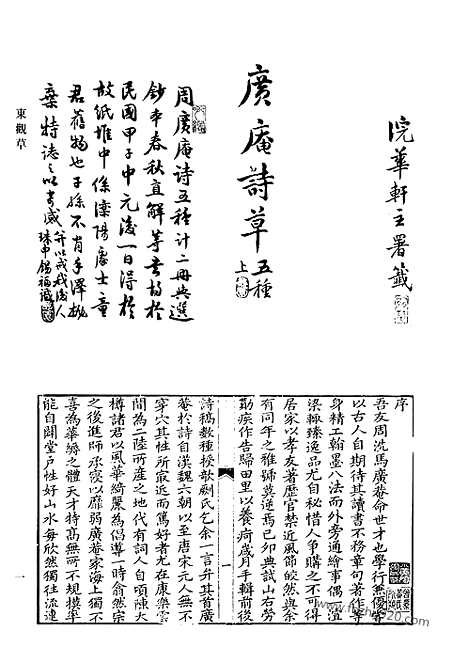 浣華軒主署籤
廣庵詩草五種
上
周廣庵詩五種計二冊與選
鈔本春秋直解等書均於
民國甲子中元後一日得於
故紙堆中係溧陽處士童
君舊物也子孫不肖手澤拋
棄特誌之以寄感
并以戒我後人
東觀草
序
吾友周洗馬廣庵命世才也學行無優嘗
以古人自期待其讀書不務章句著作等
身精工翰墨八法而外旁通繪事偶渲
染輒臻逸品尤自秘惜人爭購之不可
居家以孝友著歷官禁近風節皎然與余
有同年之雅號莫逆焉己卯典試山右勞
勩疾作告歸田里以養疴歲月手輯前後
詩稿數種授歙劂氏乞余一言弁其首廣
菴於詩自漢魏六朝以至唐宋元人無不
穿穴其性所取近而篤好者尤在康樂雲
間為二陸所產之地代有詞人自項陳大
樽諸君以風華綺麗為倡導一時翕然宗
之後進師承寖以靡弱廣菴家海上獨不
喜為華縟之體天才特高無不規撫摹
能自闢堂戶性好山水每欣然獨往流連
一
一